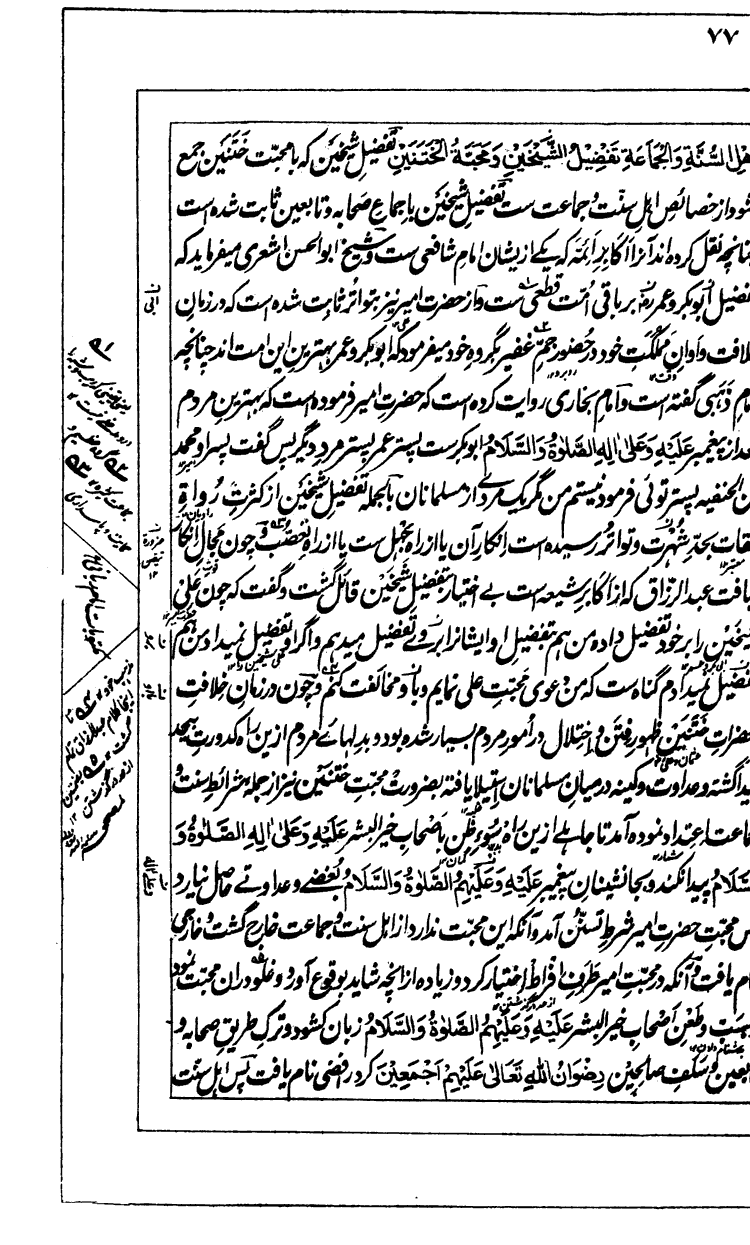 ۷۷
هل السُّنَّةِ وَالْجَمَاعَةِ تَفْضِيْلُ الشَّيْخَيْنِ وَمَحَبَّةُ الْخَتَنَيْنِ تفضیلِ شیخین که با محبّت ختنین جمع
شود از خصائصِ اہلِ سنّت وجماعت ست تفضیلِ شیخین باجماعِ صحابہ وتابعین ثابت شده است
چنانچہ نقل کرده اند آنرا اکابرِ ائمّہ کہ یکے ازیشان امامِ شافعی ست وشیخ ابوالحسن اشعری میفرماید کہ
تفضیلِ ابوبکر وعمر بر باقی امّت قطعی ست واز حضرت امیر نیز بتواتر ثابت شده است کہ در زمانِ
خلافت واوانِ مملکت خود در حضورِ جمِّ غفیر بگروهِ خود میفرمود کہ ابوبکر وعمر بہترینِ این امت اند چنانچہ
امام ذَہَبی گفتہ است وامام بخاری روایت کرده است کہ حضرت امیر فرموده است کہ بہترین مردم
بعد از پیغمبر عَلَيْهِ وَعَلىٰ اٰلِهِ الصَّلوٰةُ وَالسَّلَامُ ابوبکر ست پستر عمر پستر مردِ دیگر پس گفت پسر او محمد
بن الحنفیہ پستر توئی فرمود نیستم من مگر یک مردے از مسلمانان بالجملہ تفضیل شیخین از کثرتِ رُواةِ
ثقات بحدِّ شہرت وتواتر رسیده است انکارِ آن یا از راهِ جہل ست یا از راهِ تعصّب وچون مجالِ انکار
نیافت عبد الرزاق کہ از اکابرِ شیعہ است بے اختیار بتفضیلِ شیخین قائل گشت وگفت کہ چون علی
شیخین را بر خود تفضیل داده من ہم بتفضیل او ایشانرا بروے تفضیل میدہم واگر او تفضیل نمیداد من ہم
تفضیل نمیدادم گناه است کہ من دعوی محبّتِ علی نمایم وباو مخالفت کنم وچون در زمانِ خلافتِ
حضراتِ ختنین ظہورِ فتن واختلال در امورِ مردم بسیار شده بود وبدلہائے مردم ازین راه کدورتِ بیحد
پیدا گشتہ وعداوت وکینہ در میانِ مسلمانان استیلا یافتہ بضرورت محبّتِ ختنین نیز از جملہ شرائطِ سنت و
جماعت اعتداد نموده آمد تا جاہلے ازین راه سُوءِ ظن باصحابِ خیر البشر عَلَيْهِ وَعَلىٰ اٰلِهِ الصَّلوٰةُ وَ
السَّلَامُ پیدا نکند وبجانشینانِ پیغمبر عَلَيْهِ وَعَلَيْهِمُ الصَّلوٰةُ وَالسَّلَامُ بُغضے وعداوتے حاصل نیارد
پس محبّتِ حضرتِ امیر شرطِ تسنّن آمد وآنکہ این محبّت ندارد از اہل سنت وجماعت خارج گشت وخارجی
نام یافت وآنکہ در محبّتِ امیر طرفِ افراط اختیار کرد وزیاده از انچہ شاید بوقوع آورد وغلو در ان محبّت نمود
وبسبّ وطعنِ اصحابِ خیر البشر عَلَيْهِ وَعَلَيْهِمُ الصَّلوٰةُ وَالسَّلَامُ زبان کشود وترکِ طریقِ صحابہ و
تابعین وسلفِ صالحین رِضْوَانُ اللهِ تَعَالىٰ عَلَيْهِمْ اَجْمَعِيْنَ کرد رافضی نام یافت پس اہل سنّت
مکتوبات امام ربانی